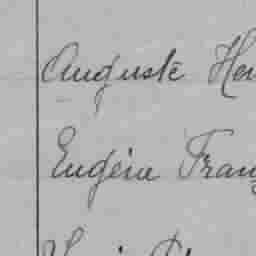 Auguste Hen
Eugénie Franç